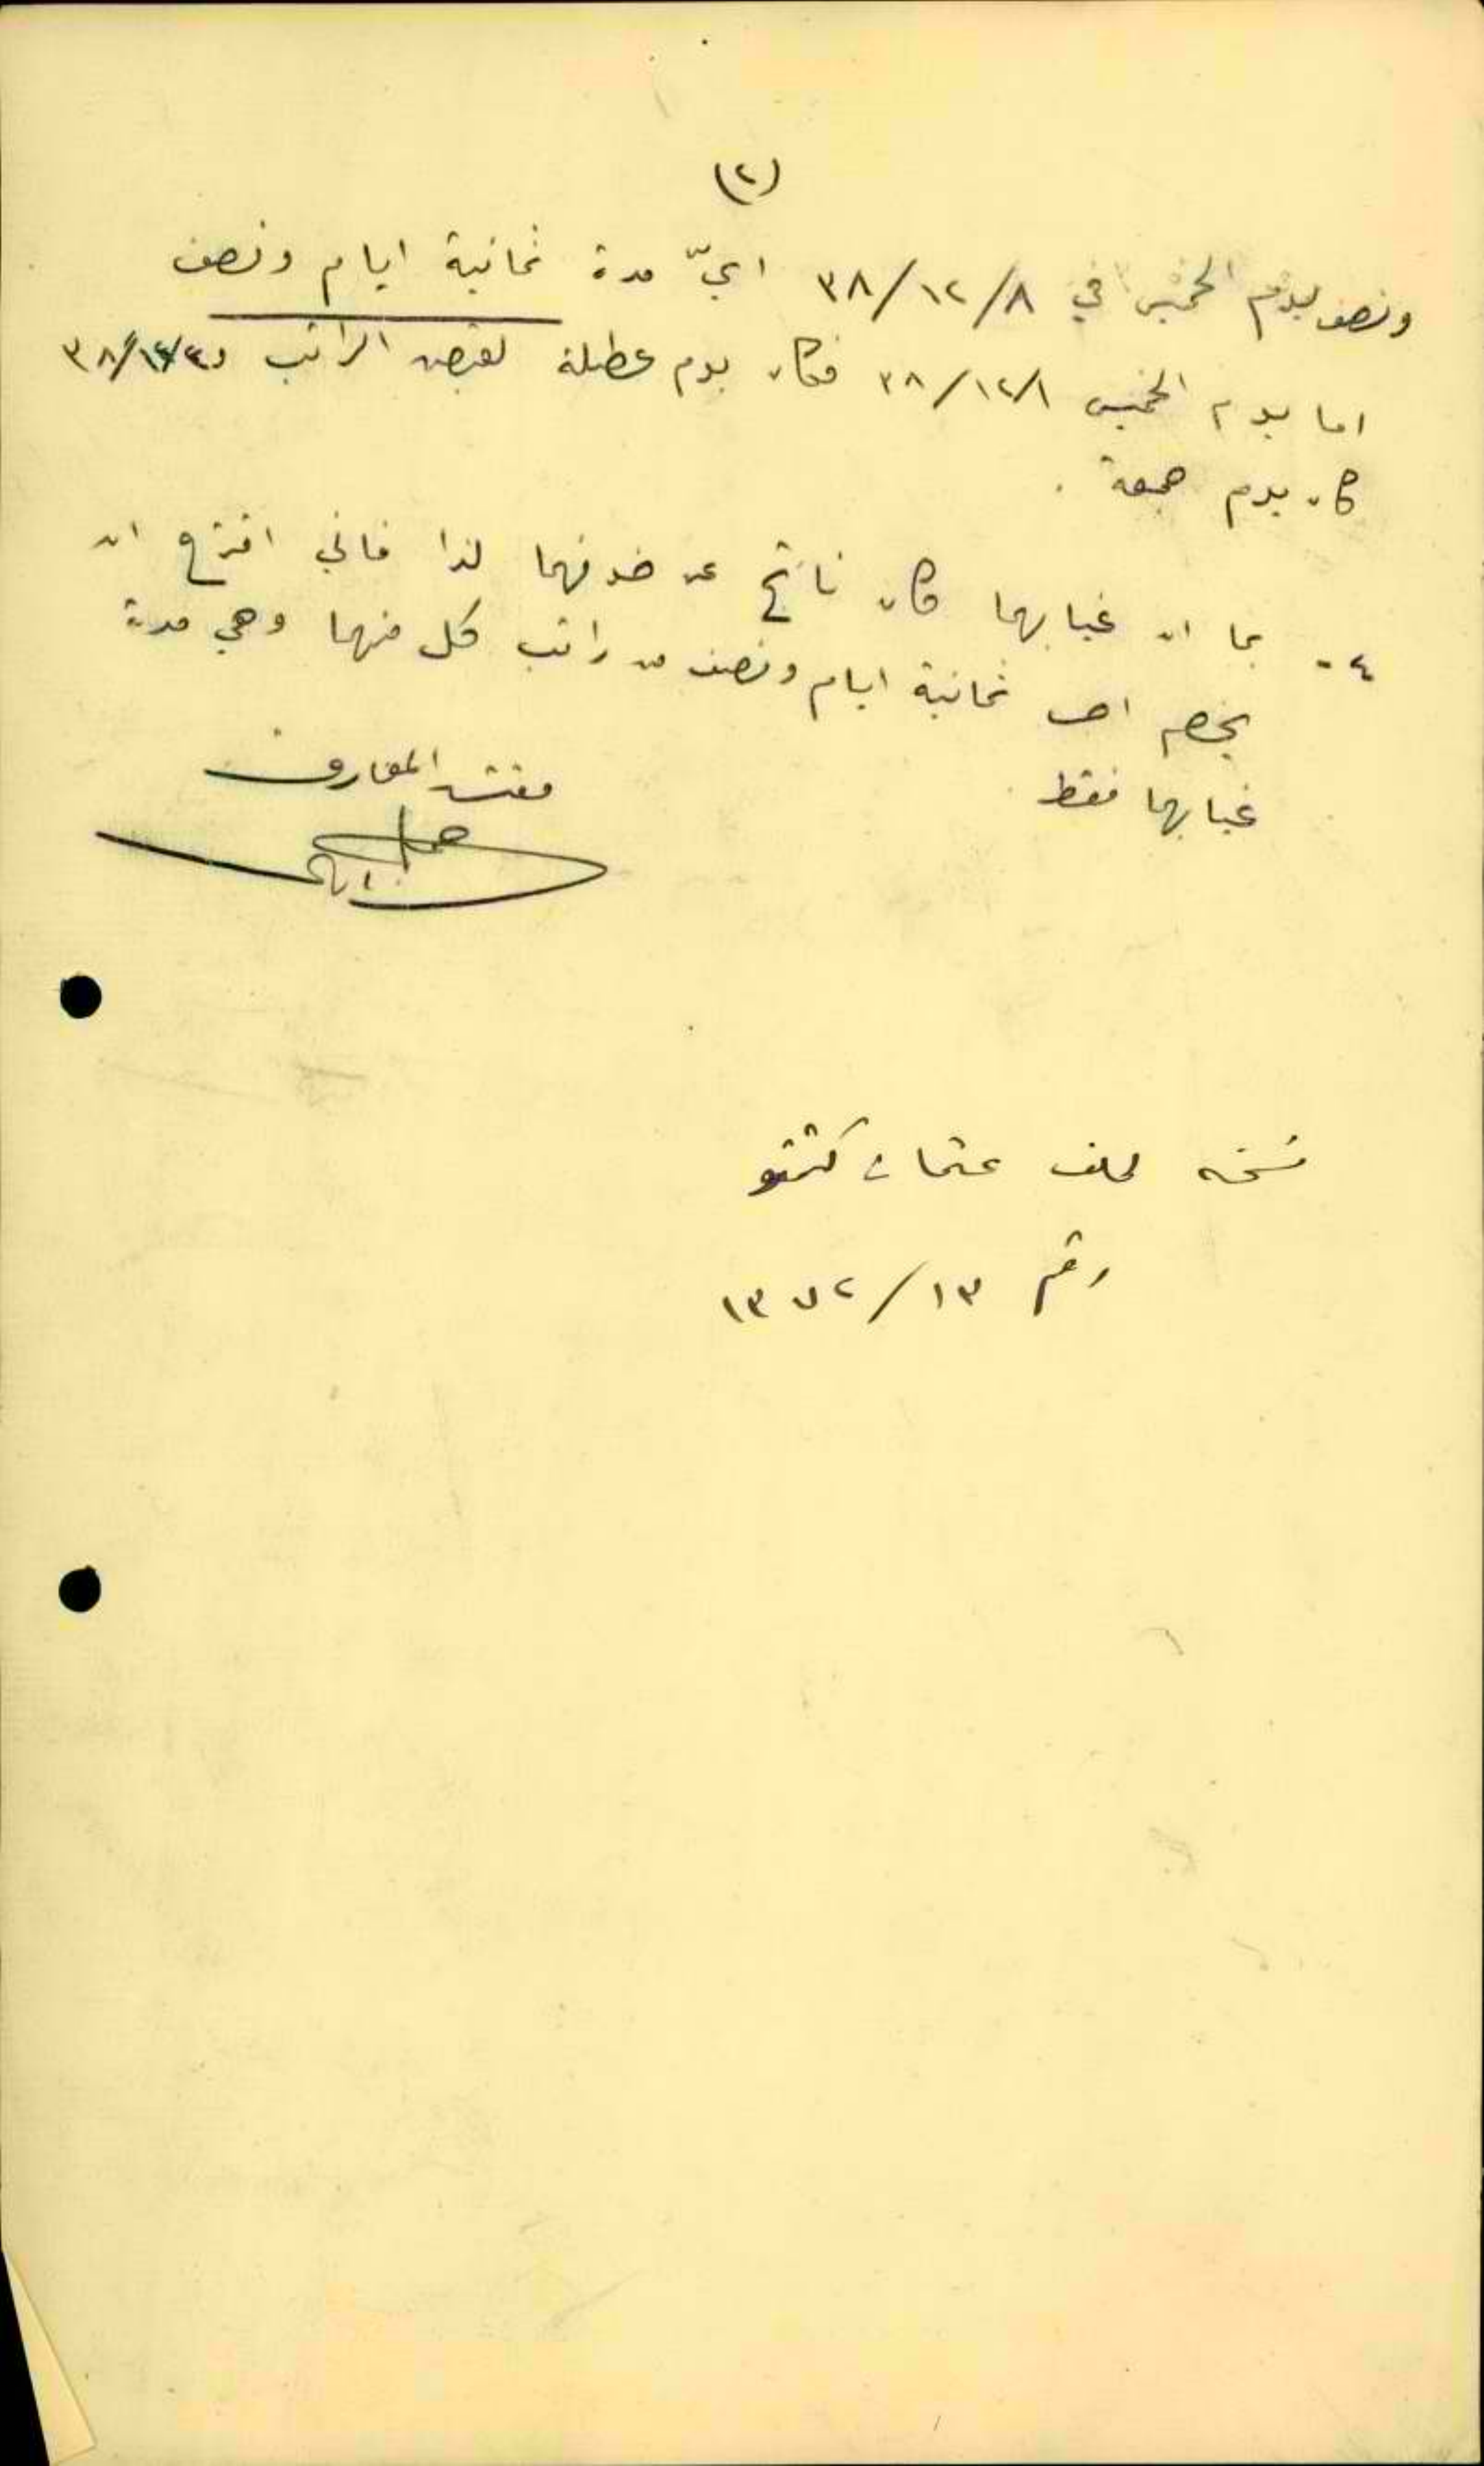 (٢)
ونصف يوم الخميس في ٣٨/١٢/٨ ايّ مدة ثمانية ايام ونصف
اما يوم الخميس ٣٨/١٢/١ فكان يوم عطلة لقبض الراتب و ٣٨/١٢/٢
كان يوم جمعة .
٤- بما ان غيابهما كان ناتج عن خوفهما لذا فاني اقترح ان
يخصم ثمانية ايام ونصف من راتب كل منهما وهي مدة
غيابهما فقط
مفتش المعارف
نسخه لملف عثمان
رقم ١٣٧٢/١٣